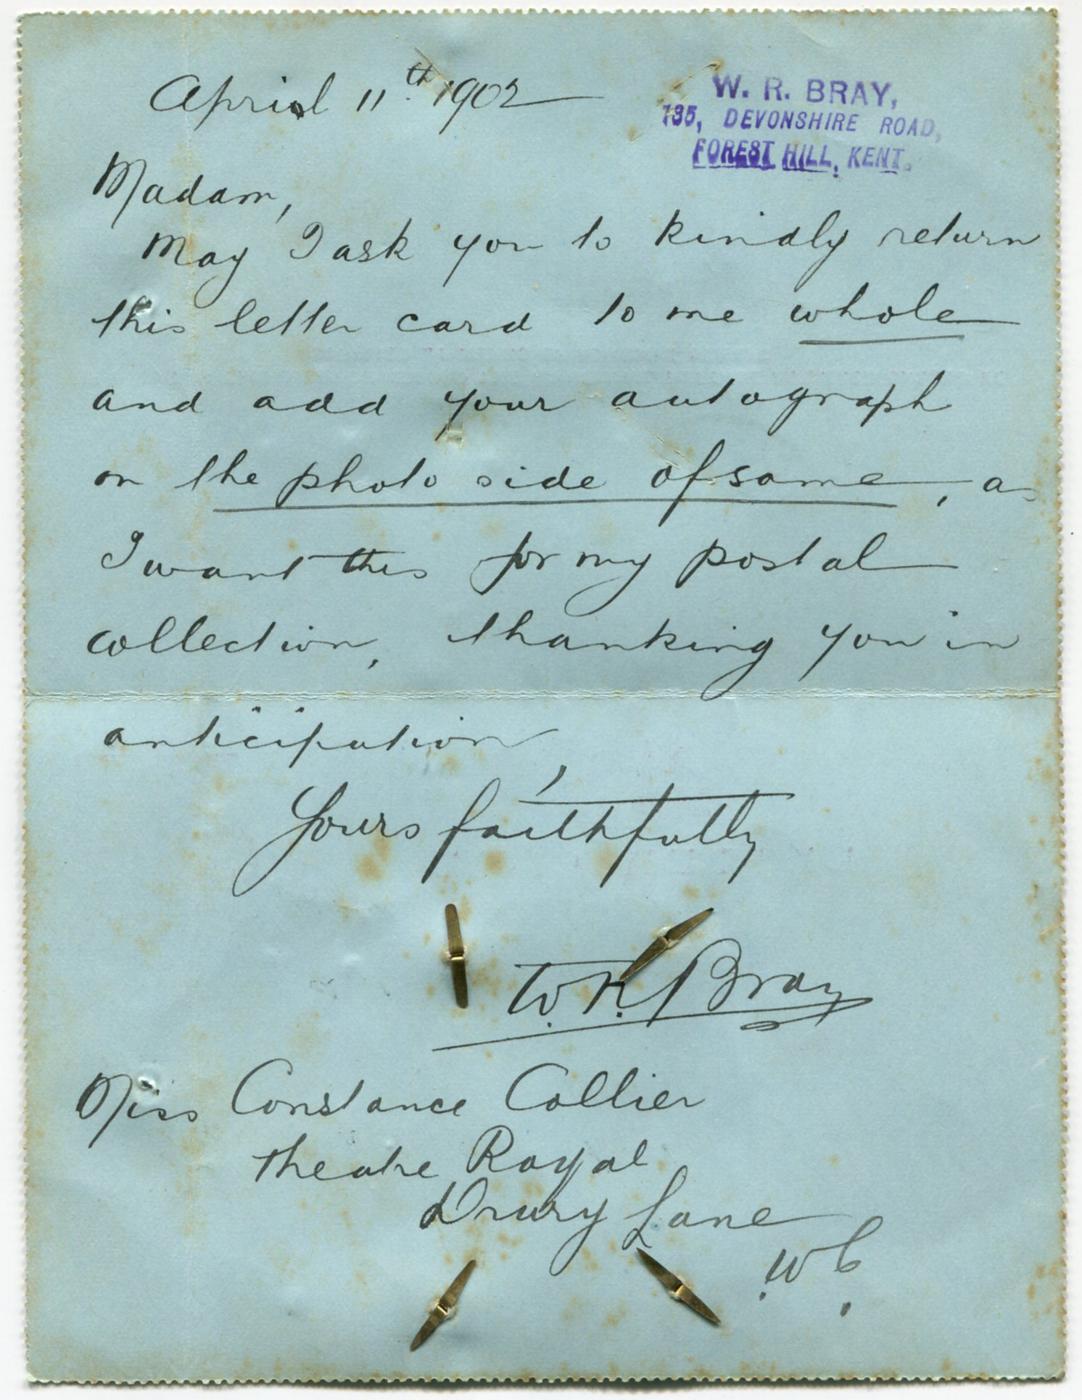 April 11th 1902
W. R. BRAY,
135, DEVONSHIRE ROAD,
FOREST HILL, KENT.
Madam,
May I ask you to kindly return
this letter card to me whole
and add your autograph
on the photo side of same, as
I want this for my postal
collection, thanking you in
anticipation,
Yours faithfully
W. R. Bray
Miss Constance Collier
Theatre Royal
Drury Lane
W.C.